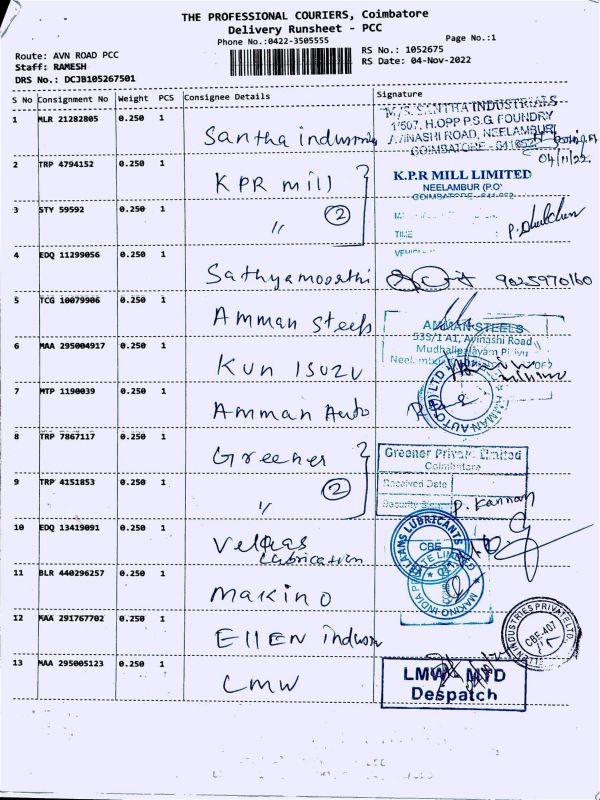 THE PROFESSIONAL COURIERS, Coimbatore
Delivery Runsheet - PCC
Phone No.:0422-3505555
Page No.:1
Route: AVN ROAD PCC
Staff: RAMESH
DRS No.: DCJB105267501
RS No.: 1052675
RS Date: 04-Nov-2022
S No Consignment No Weight PCS Consignee Details Signature
1 MLR 21282805 0.250 1 Santha industries
M/S. SANTHA INDUSTRIALS
1/507, H.OPP P.S.G. FOUNDRY
AVINASHI ROAD, NEELAMBUR,
COIMBATORE - 641062
04/11/22
2 TRP 4794152 0.250 1 KPR mill
K.P.R MILL LIMITED
NEELAMBUR (P.O)
COIMBATORE
3 STY 59592 0.250 1 " 2
TIME :
4 EDQ 11299056 0.250 1 Sathyamoorthi 9025970160
5 TCG 10079906 0.250 1 Amman Steels
AMMAN STEELS
533/1 A1, Avinashi Road
Mudhalipalayam Pirivu
6 MAA 295004917 0.250 1 Kun ISUZU
7 MTP 1190039 0.250 1 Amman Auto
AMMAN AUTO (P) LTD
8 TRP 7867117 0.250 1 Greener
Greener Private Limited
Coimbatore
Received Date
9 TRP 4151853 0.250 1 " 2
Security Sign
P. Kannan
10 EDQ 13419091 0.250 1 Velras Lubrication
LUBRICANTS
CBE
11 BLR 440296257 0.250 1 Makino
MAKINO INDIA
12 MAA 291767702 0.250 1 Ellen indusr
INDUSTRIES PRIVATE LTD.
CBE-407
13 MAA 295005123 0.250 1 LMW
LMW - MTD
Despatch